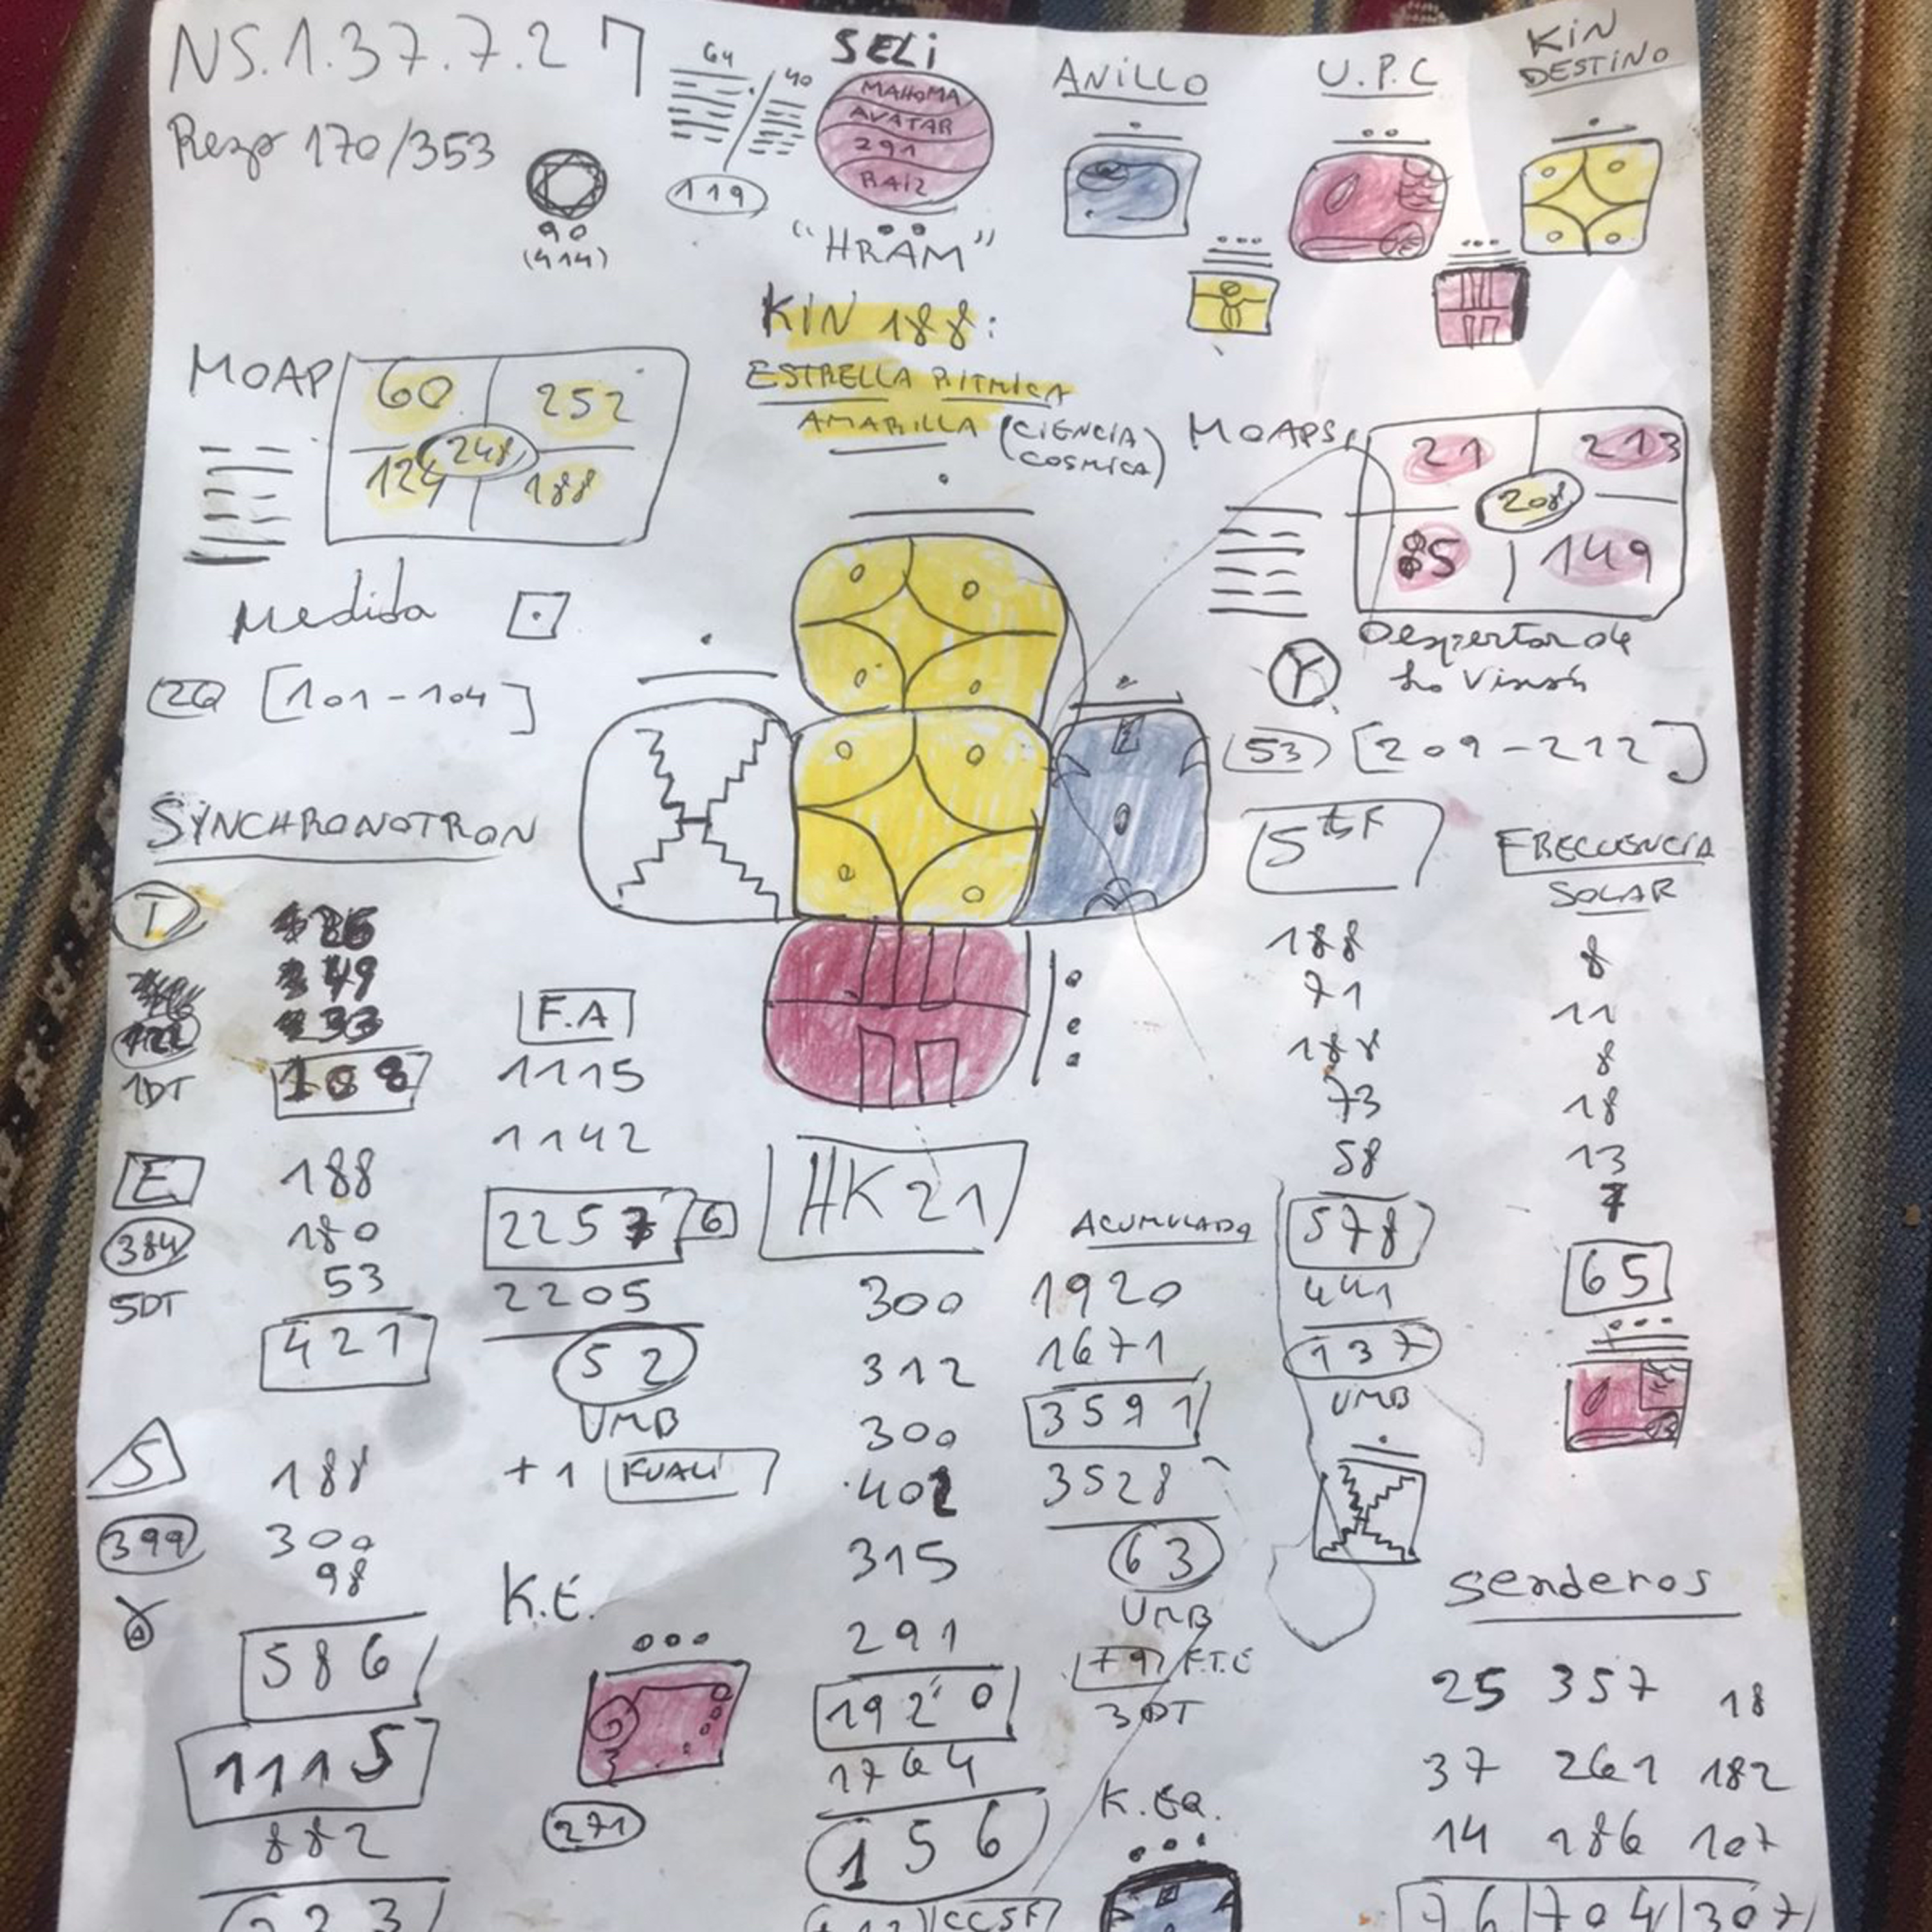 NS.1.37.7.2
Rezo 170/353
90
(414)
64
40
119
SELI
MAHOMA
AVATAR
291
RAIZ
"HRAM"
ANILLO
U.P.C
KIN
DESTINO
KIN 188:
ESTRELLA RITMICA
AMARILLA (CIENCIA
COSMICA)
MOAP
60 252
248
124 188
MOAPS
21 213
208
85 149
Medida
26 [101-104]
Despertar de
la Visión
53 [209-212]
SYNCHRONOTRON
T
26
49
33
122
1DT 108
E 188
384 180
53
5DT
421
S 188
399 300
98
586
1115
882
233
F.A
1115
1142
2257 6
2205
52
UMB
+1 KUALI
K.E.
271
HK21
300
312
300
402
315
291
1920
1764
156
CCSF
ACUMULADA
1920
1671
3591
3528
63
UMB
79 F.T.E
3DT
K.EQ.
5tSF
188
71
188
73
58
578
441
137
UMB
FRECUENCIA
SOLAR
8
11
8
18
13
7
65
Senderos
25 357 18
37 261 182
14 186 107
76 704 307